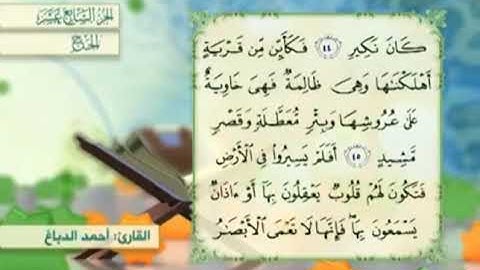 الجزء السابع عشر
الحج
كَانَ نَكِيرِ ٤٤ فَكَأَيِّن مِّن قَرْيَةٍ
أَهْلَكْنَٰهَا وَهِىَ ظَالِمَةٌ فَهِىَ خَاوِيَةٌ
عَلَىٰ عُرُوشِهَا وَبِئْرٍ مُّعَطَّلَةٍ وَقَصْرٍ
مَّشِيدٍ ٤٥ أَفَلَمْ يَسِيرُوا۟ فِى ٱلْأَرْضِ
فَتَكُونَ لَهُمْ قُلُوبٌ يَعْقِلُونَ بِهَآ أَوْ ءَاذَانٌ
يَسْمَعُونَ بِهَا فَإِنَّهَا لَا تَعْمَى ٱلْأَبْصَٰرُ
القارئ: أحمد الدباغ